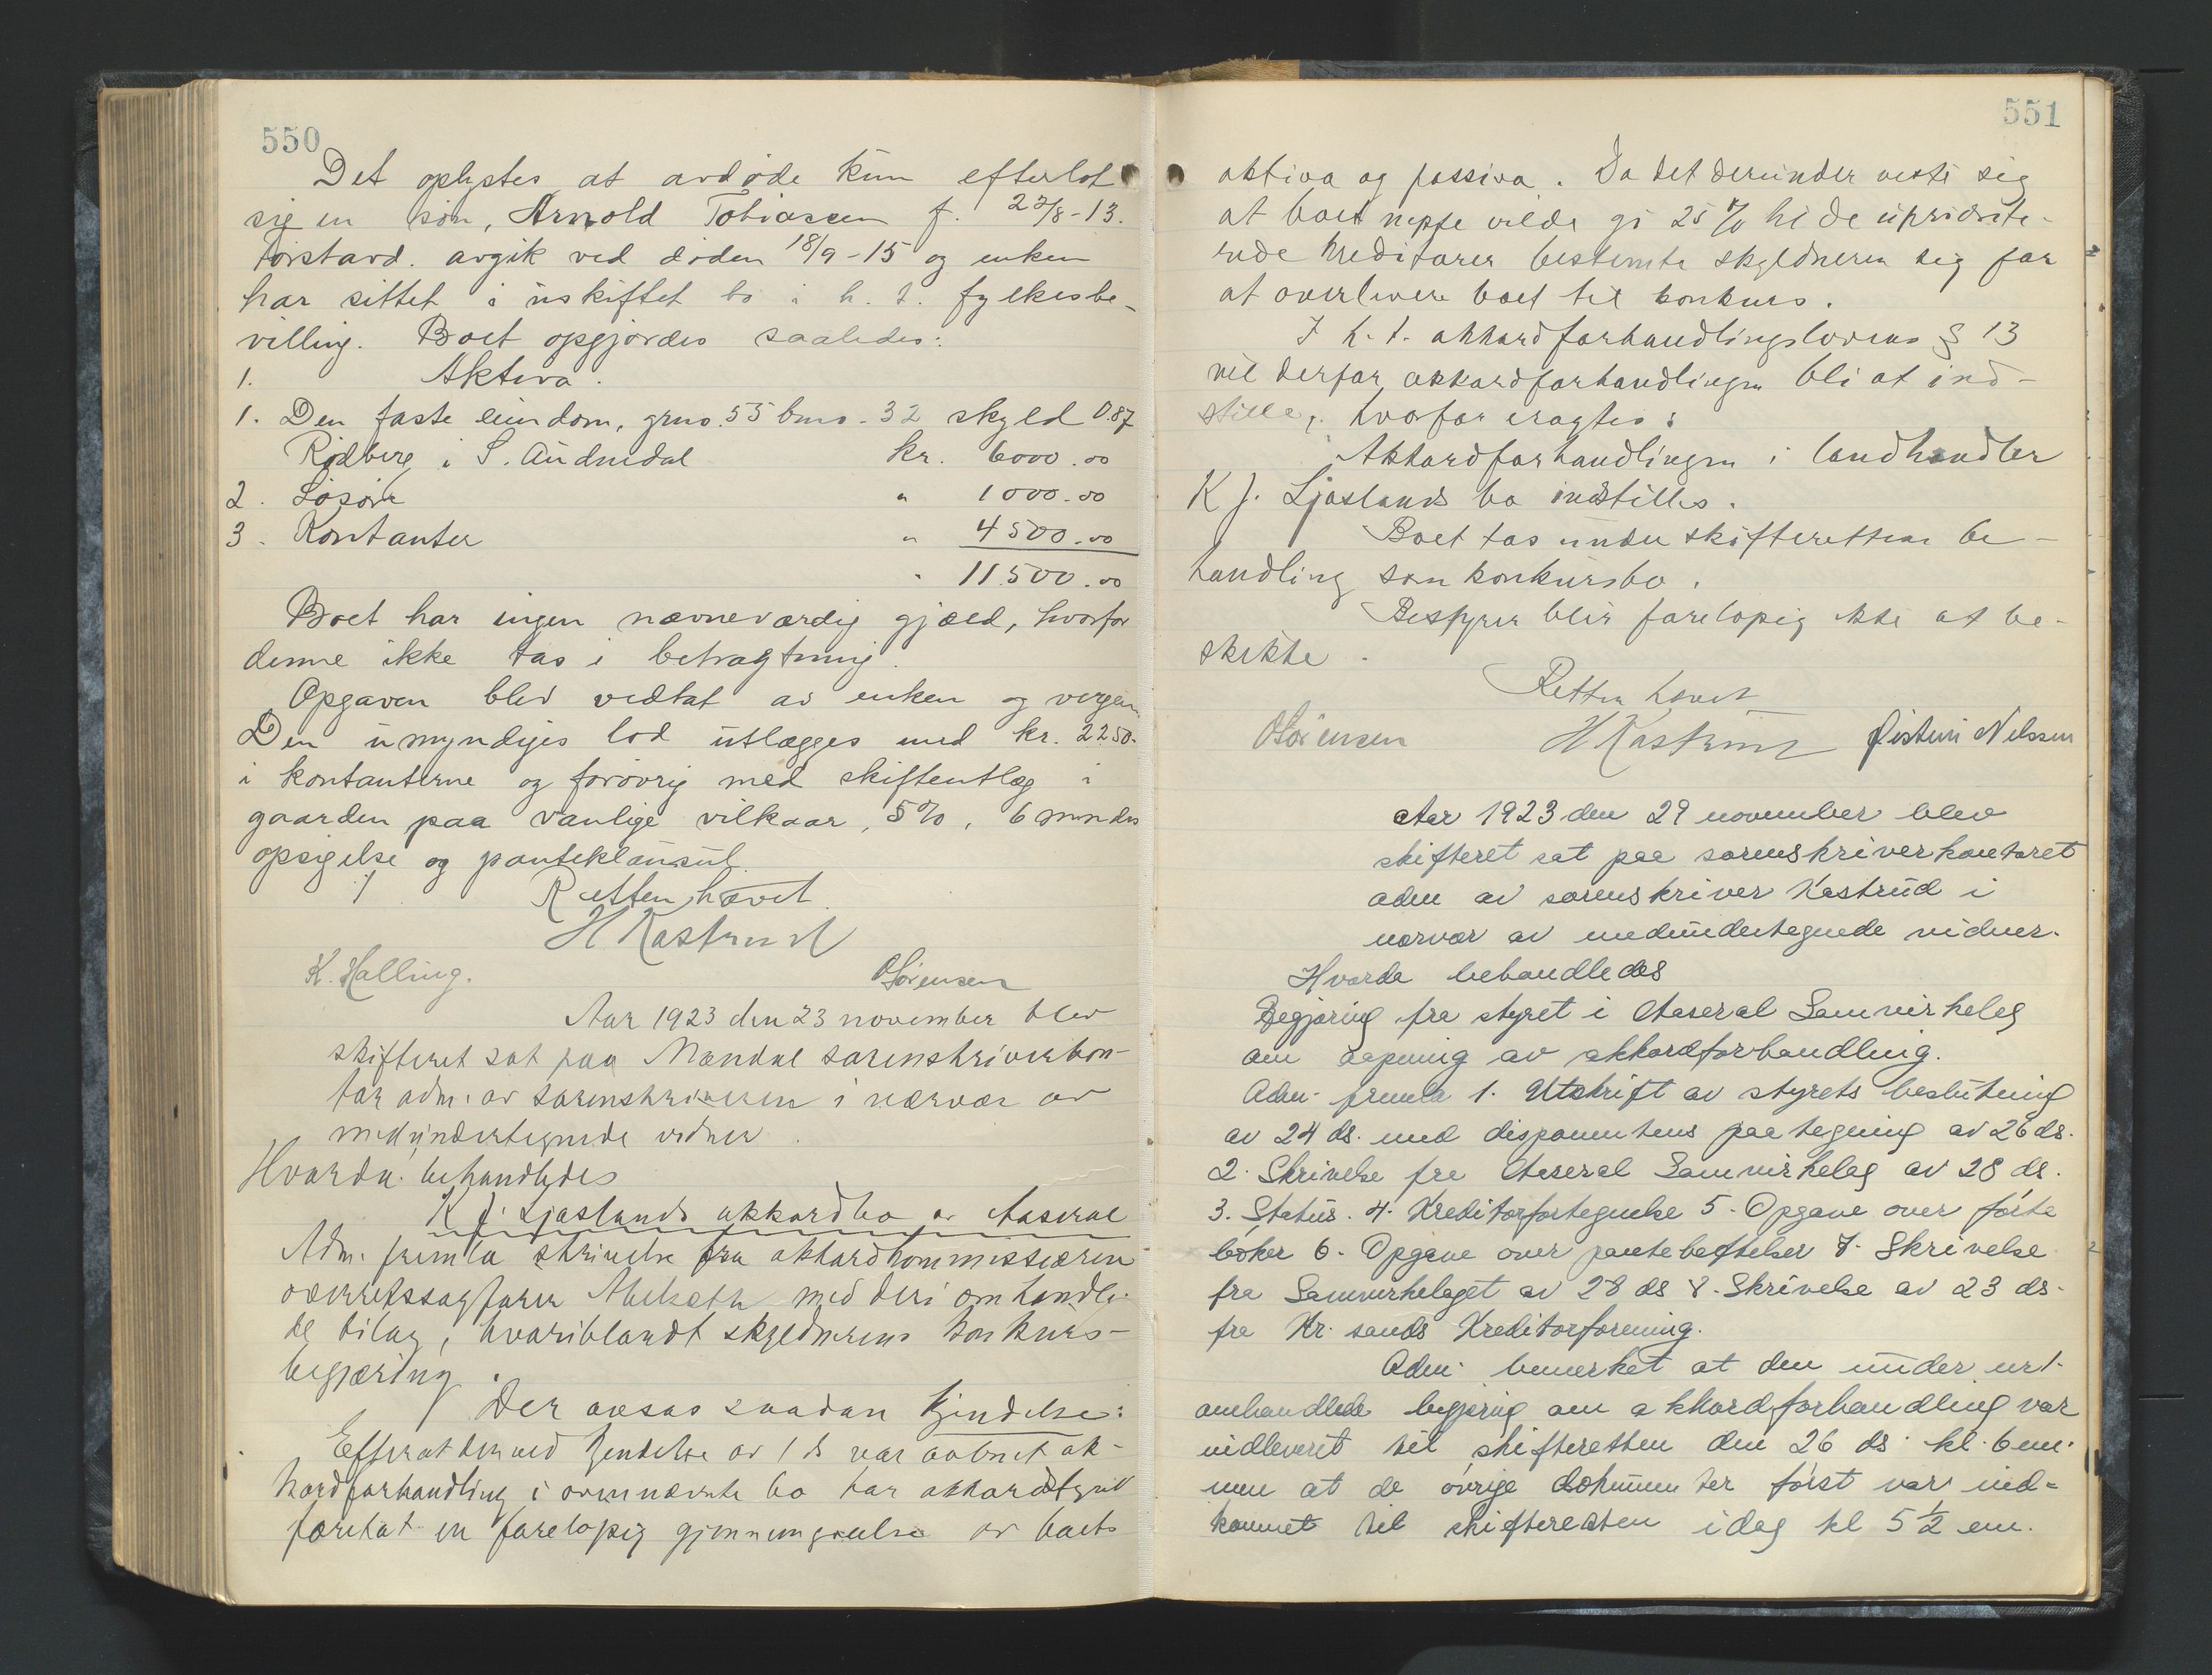 550
Det oplystes at avdøde kun efterlot
sig en søn, Arnold Tobiassen f. 27/8-13.
Førstavd. avgik ved døden 18/9-15 og enken
har sittet i uskiftet bo i h. t. fylkesbe-
villing. Boet opgjordes saaledes:
1. Aktiva.
1. Den faste eiendom, grno. 55 bno. 32 skyld 0.87
Rødberg i S. Audnedal kr. 6000.00
2. Løsøre " 1000.00
3. Kontanter " 4500.00
" 11.500.00
Boet har ingen nævneværdig gjæld, hvorfor
denne ikke tas i betragtning.
Opgaven blev vedtat av enken og vergen
Den umyndiges lod utlægges med kr. 2250.
i kontanterne og forøvrig med skifteutlæg i
gaarden paa vanlige vilkaar, 5%, 6 mndrs
opsigelse og panteklausul.
Retten hævet.
H Kastrud
K. Halling. O Sørensen
Aar 1923 den 23 november blev
skifteret sat paa Mandal sorenskriverkon-
tor adm. av sorenskriveren i nærvær av
medundertegnede vidner.
Hvorda behandledes
K J. Ljoslands akkordbo av Aaseral
Adm. fremla skrivelse fra akkordkommissæren
overretssagfører med deri omhandle-
de bilag, hvoriblandt skyldnerens konkurs-
begjæring.
Der avsas saadan Kjendelse:
Efterat der ved kjendelse av 1 ds var aabnet ak-
kordforhandling i ovennævnte bo har akkordstyret
foretat en foreløpig gjennemgaaelse av boets
551
aktiva og passiva. Da det derunder viste sig
at boet neppe vilde gi 25 % til de uprioriste-
rede kreditorer bestemte skyldneren sig for
at overlevere boet til konkurs.
I h. t. akkordforhandlingslovens § 13
vil derfor akkordforhandlingen bli at ind-
stille, hvorfor eragtes:
Akkordforhandlingen i landhandler
K J. Ljoslands bo indstilles.
Boet tas under skifterettens be-
handling som konkursbo.
Bestyrer blir foreløpig ikke at be-
skikke.
Retten hævet
O Sørensen H Kastrud Øistein Nilssen
Aar 1923 den 29 november blev
skifteret sat paa sorenskriverkontoret
adm av sorenskriver Kastrud i
nærvær av medundertegnede vidner.
Hvorda behandledes
Begjæring fra styret i Aaseral Samvirkelag
om aapning av akkordforhandling.
Adm. fremla 1. Utskrift av styrets beslutning
av 24 ds. med disponentens paategning av 26 ds.
2. Skrivelse fra Aaseral Samvirkelag av 28 ds.
3. Status. 4. Kreditorfortegnelse 5. Opgave over førte
bøker 6. Opgave over panteheftelser 7. Skrivelse
fra Samvirkelaget av 28 ds 8. Skrivelse av 23 ds.
fra Kr. sands Kreditorforening.
Adm. bemerket at den under nr 1.
omhandlede begjæring om akkordforhandling var
indleveret til skifteretten den 26 ds. kl. 6 em.
men at de øvrige dokumenter først var ind-
kommet til skifteretten idag kl 5 1/2 em.